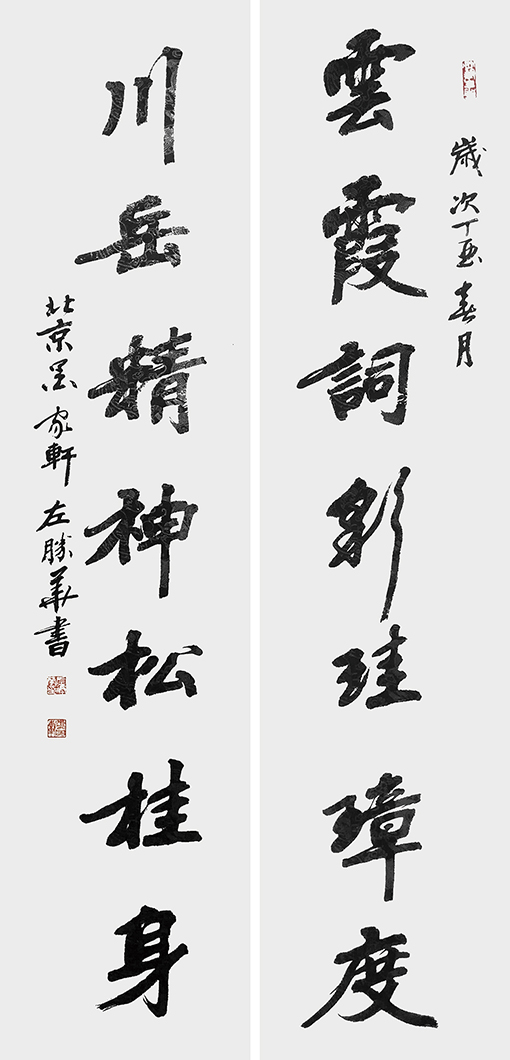 歲次丁酉春月
雲霞詞彩珪璋度
川岳精神松桂身
北京墨家軒左勝華書